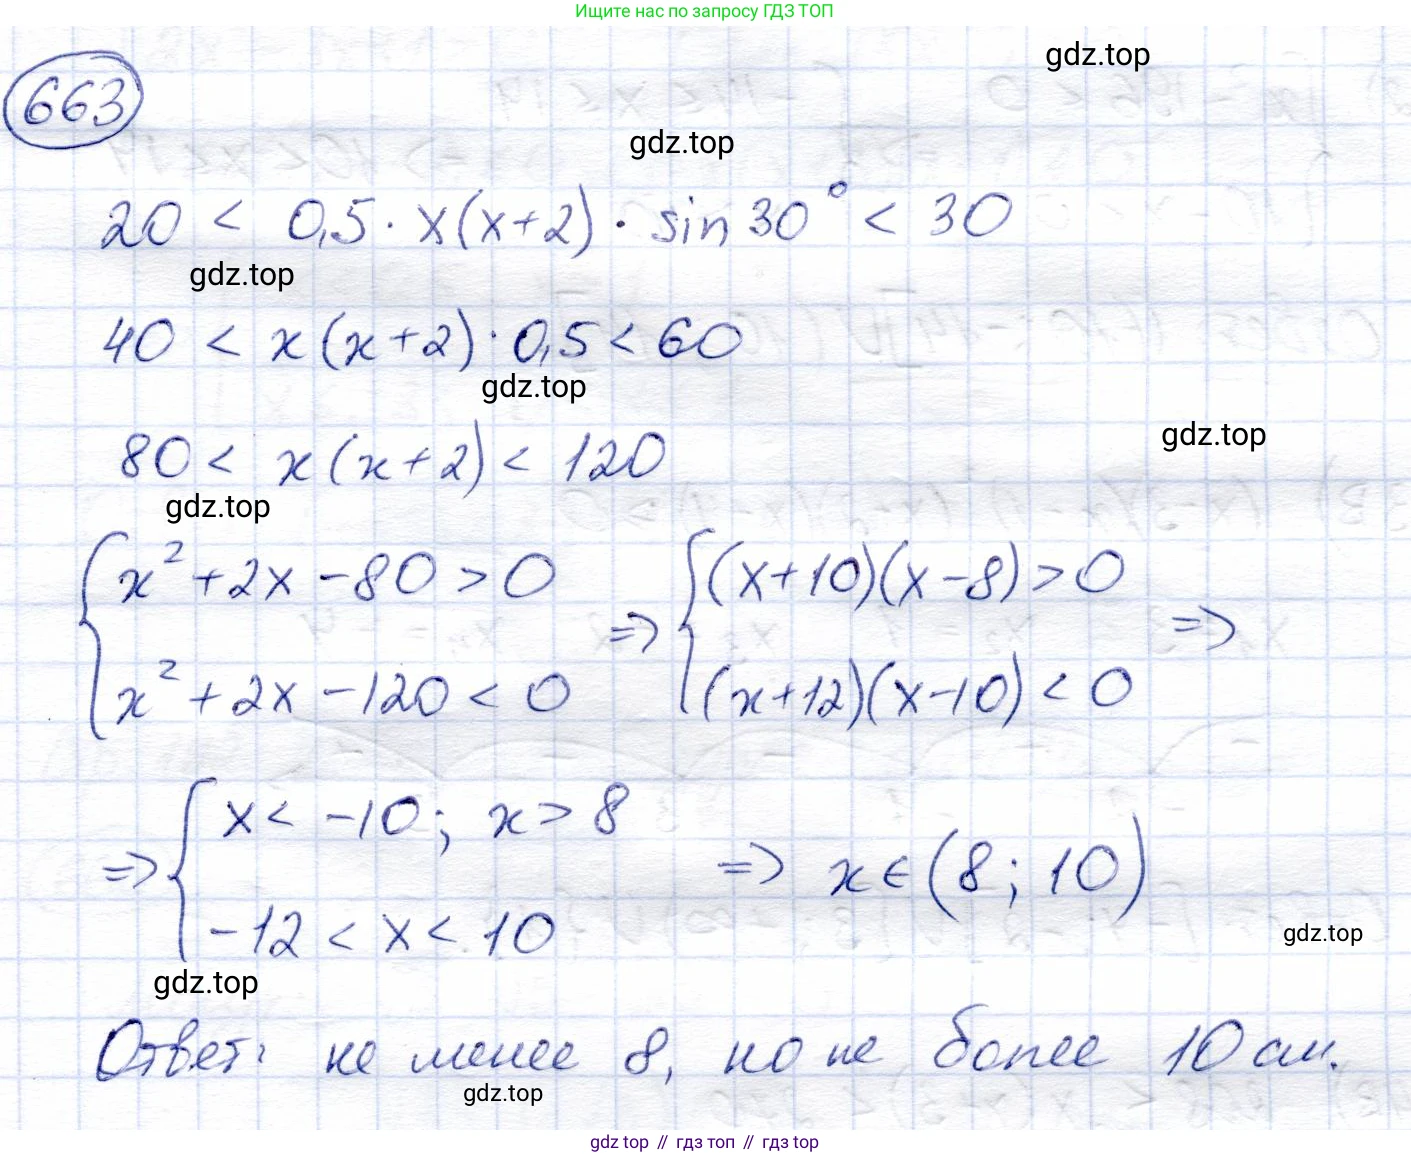 Ищите нас по запросу ГДЗ ТОП
gdz.top
663
gdz.top
20 < 0,5 · x(x+2) · sin 30° < 30
gdz.top
40 < x(x+2) · 0,5 < 60
gdz.top
gdz.top
80 < x(x+2) < 120
gdz.top
{ x² + 2x - 80 > 0 => { (x+10)(x-8) > 0 =>
x² + 2x - 120 < 0 (x+12)(x-10) < 0
=> { x < -10; x > 8 => x ∈ (8; 10)
-12 < x < 10
gdz.top
gdz.top
Ответ: не менее 8, но не более 10 см.
gdz.top
gdz top // гдз топ // гдз top